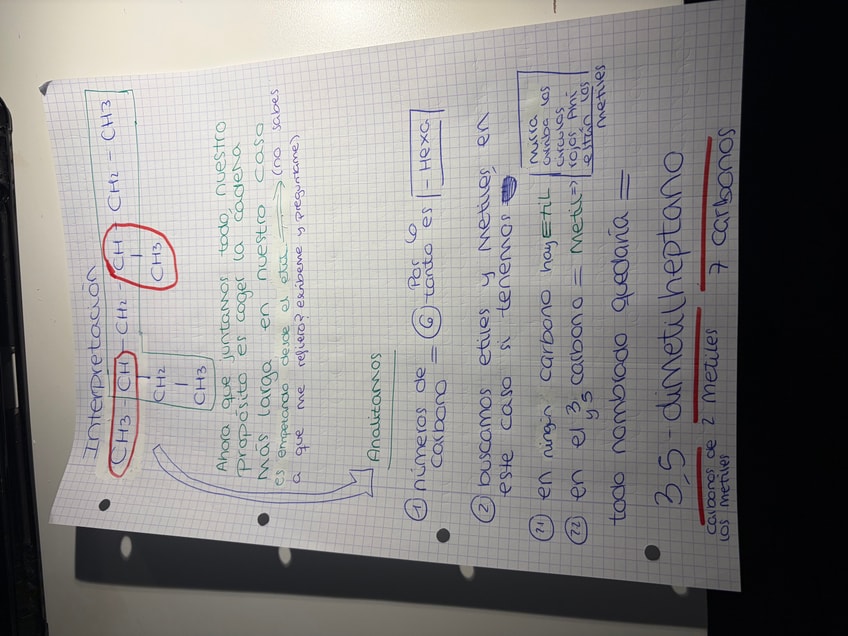 Interpretación
CH3 - CH - CH2 - CH - CH2 - CH3
CH2 CH3
CH3
Ahora que juntamos todo, nuestro
propósito es coger la cadena
más larga en nuestro caso
es empezando desde el etil → (no sabes
a que me refiero? escribeme y preguntame)
Analizamos
① números de carbono = ⑥ Por lo tanto es - Hexa
② buscamos etiles y Metiles, en
este caso si tenemos
21 en ningún carbono hay ETIL
22 en el 3 y 5 carbono = metil =>
mira arriba los circulos rojos Ahí están los metiles
todo nombrado quedaría =
3,5 - dimetilheptano
carbonos de los metiles
2 metiles
7 carbonos